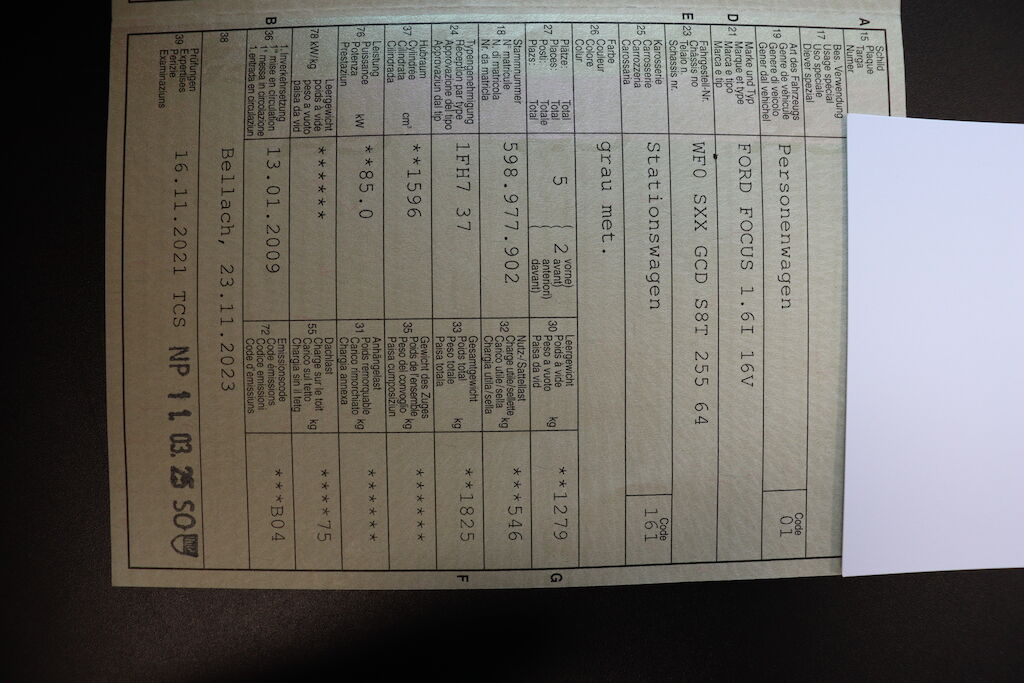 A 15 Schild
Plaque
Targa
Numer
17 Bes. Verwendung
Usage spécial
Uso speciale
Diever spezial
19 Art des Fahrzeugs
Genre de véhicule
Genere di veicolo
Gener dal vehichel
Personenwagen
Code
01
D 21 Marke und Typ
Marque et type
Marca e tipo
Marca e tip
FORD FOCUS 1.6I 16V
E 23 Fahrgestell-Nr.
Châssis no
Telaio n.
Schassis nr.
WF0 SXX GCD S8T 255 64
25 Karosserie
Carrosserie
Carrozzeria
Carossaria
Stationswagen
Code
161
26 Farbe
Couleur
Colore
Colur
grau met.
27 Plätze: Total
Places: Total
Posti: Totale
Plazs: Total
5
2 vorne)
avant)
anteriori)
davant)
30 Leergewicht
Poids à vide
Peso a vuoto
Paisa da vid
kg
**1279
G
18 Stammnummer
N° matricule
N. di matricola
Nr. da matricla
598.977.902
32 Nutz-/Sattellast
Charge utile/sellette
Carico utile/sella
Chargia utila/sella
kg
***546
24 Typengenehmigung
Réception par type
Approvazione del tipo
Approvaziun dal tip
1FH7 37
33 Gesamtgewicht
Poids total
Peso totale
Paisa totala
kg
**1825
F
37 Hubraum
Cylindrée
Cilindrata
Cilindrada
cm³
**1596
35 Gewicht des Zuges
Poids de l'ensemble
Peso del convoglio
Paisa cumposiziun
kg
******
76 Leistung
Puissance
Potenza
Prestaziun
kW
**85.0
31 Anhängelast
Poids remorquable
Carico rimorchiato
Chargia annexa
kg
******
78 kW/kg
Leergewicht
poids à vide
peso a vuoto
paisa da vid
******
55 Dachlast
Charge sur le toit
Carico sul tetto
Chargia sin il tetg
kg
****75
B 36 1. Inverkehrsetzung
1re mise en circulation
1a messa in circolazione
1. entrada en circulaziun
13.01.2009
72 Emissionscode
Code émissions
Codice emissioni
Code d'emissiuns
***B04
38
Bellach, 23.11.2023
39 Prüfungen
Expertises
Perizie
Examinaziuns
16.11.2021 TCS NP 11. 03. 25 SO